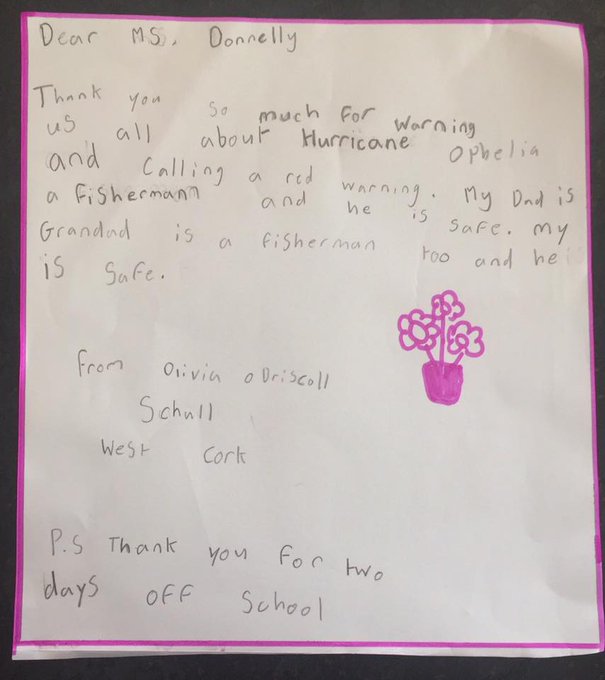 Dear Ms. Donnelly
Thank you so much for warning
us all about Hurricane Ophelia
and Calling a red warning. My Dad is
a fishermann and he is safe. my
Grandad is a fisherman too and he
is safe.
from Olivia o Driscoll
Schull
West Cork
P.S Thank you for two
days off School